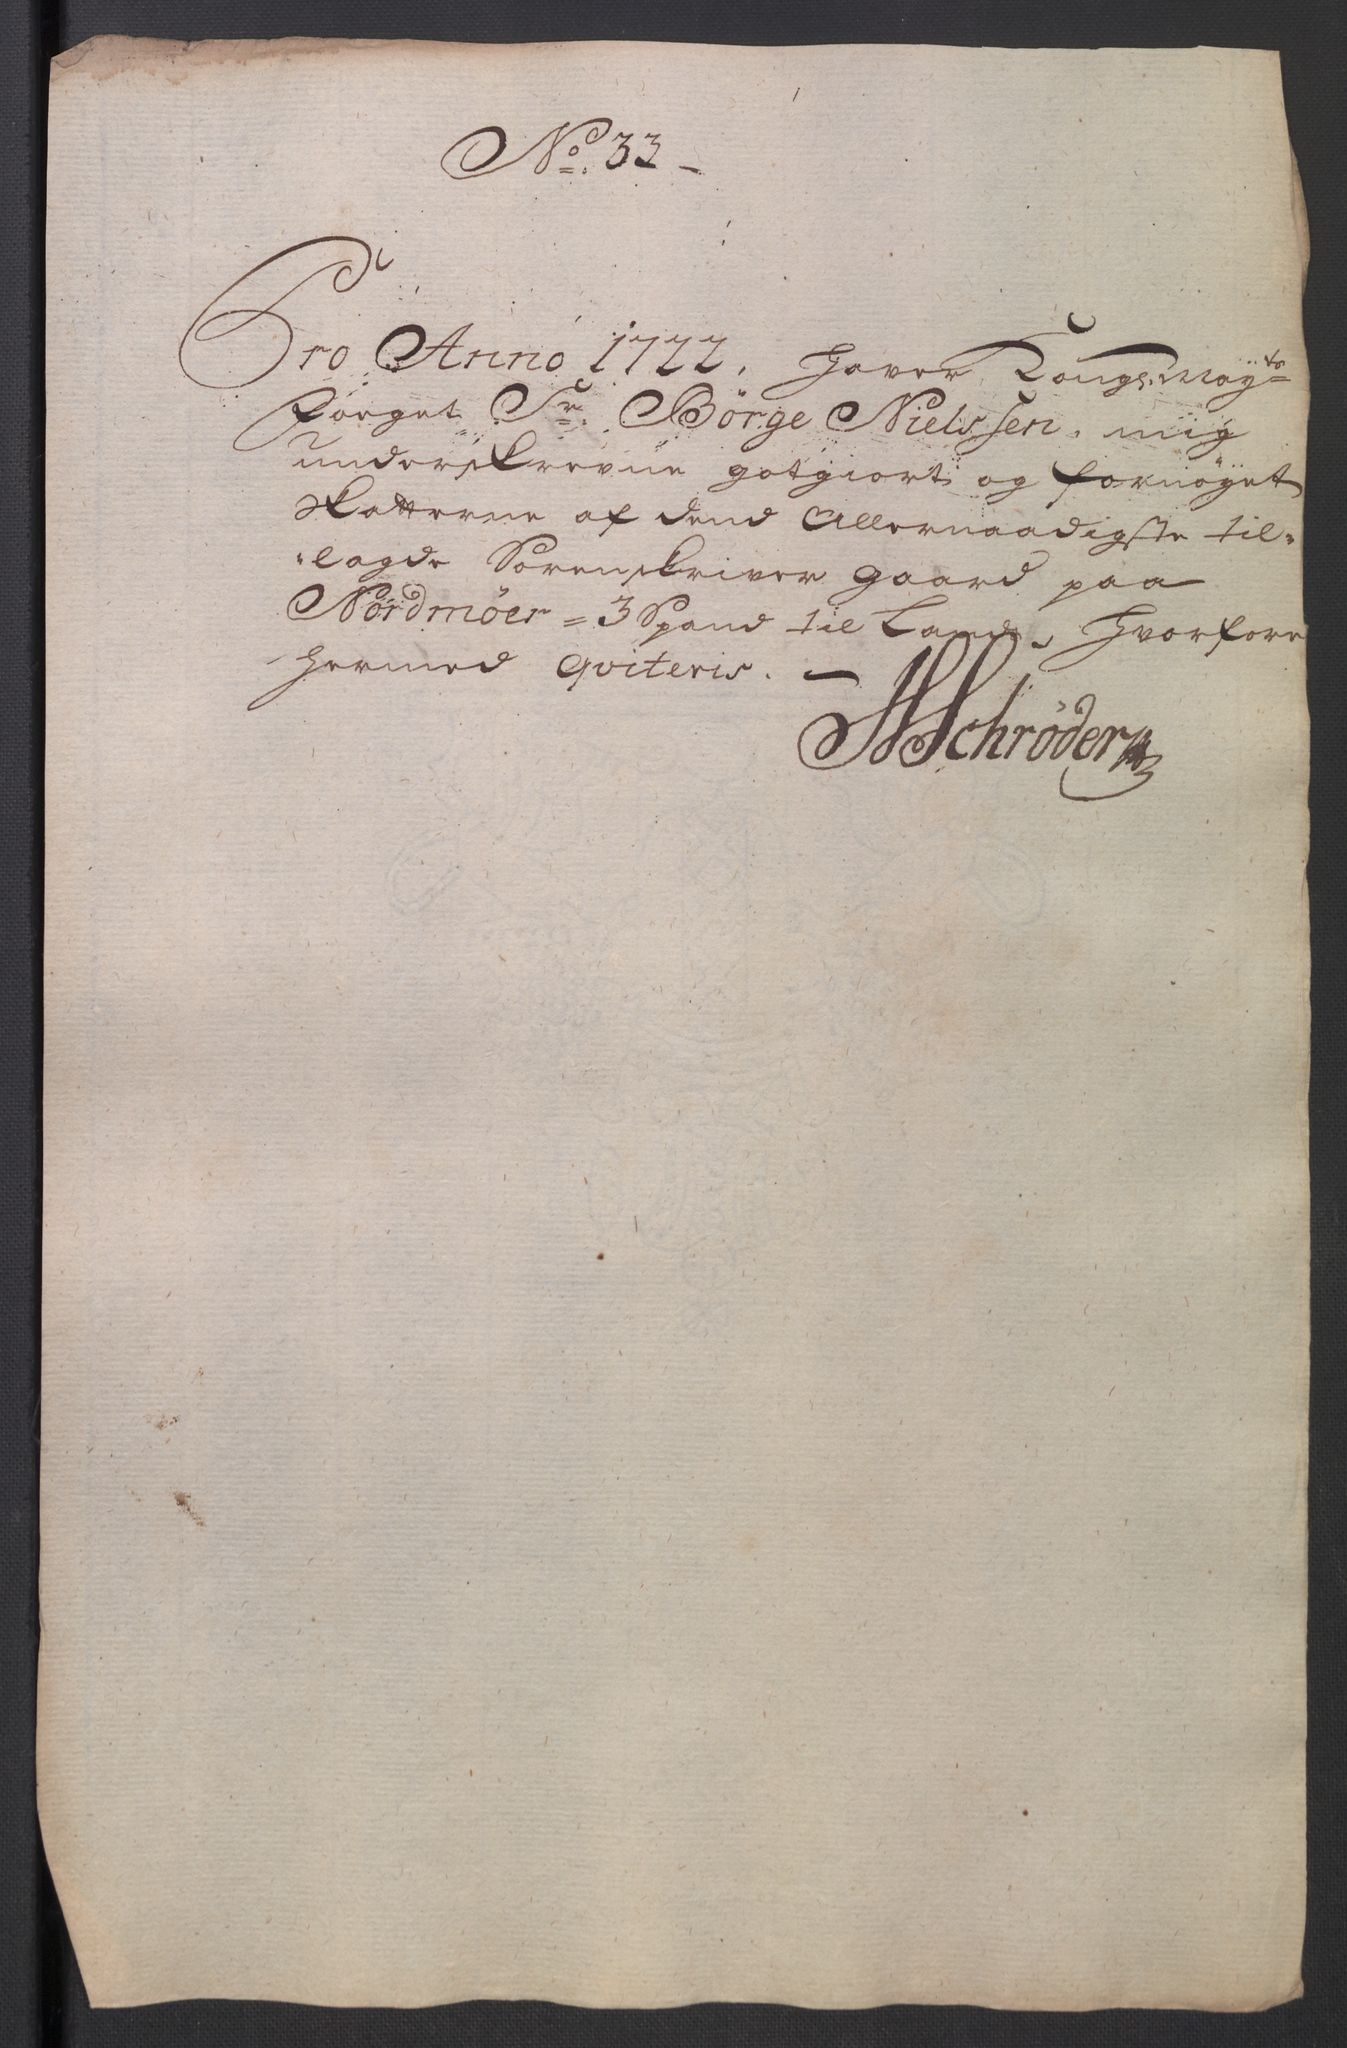 No. 33 -
Pro Anno 1722. Haver Kongs. Mayts
Foaget Sr. Börge Nielssen, mig
underskrevne gotgiort og fornöyet
skatterne af dend Allernaadigste til-
lagde Sorenskriver gaard paa
Nordmöer = 3 Spand til Land, hvorfore
hermed qviteris. -
Schröder